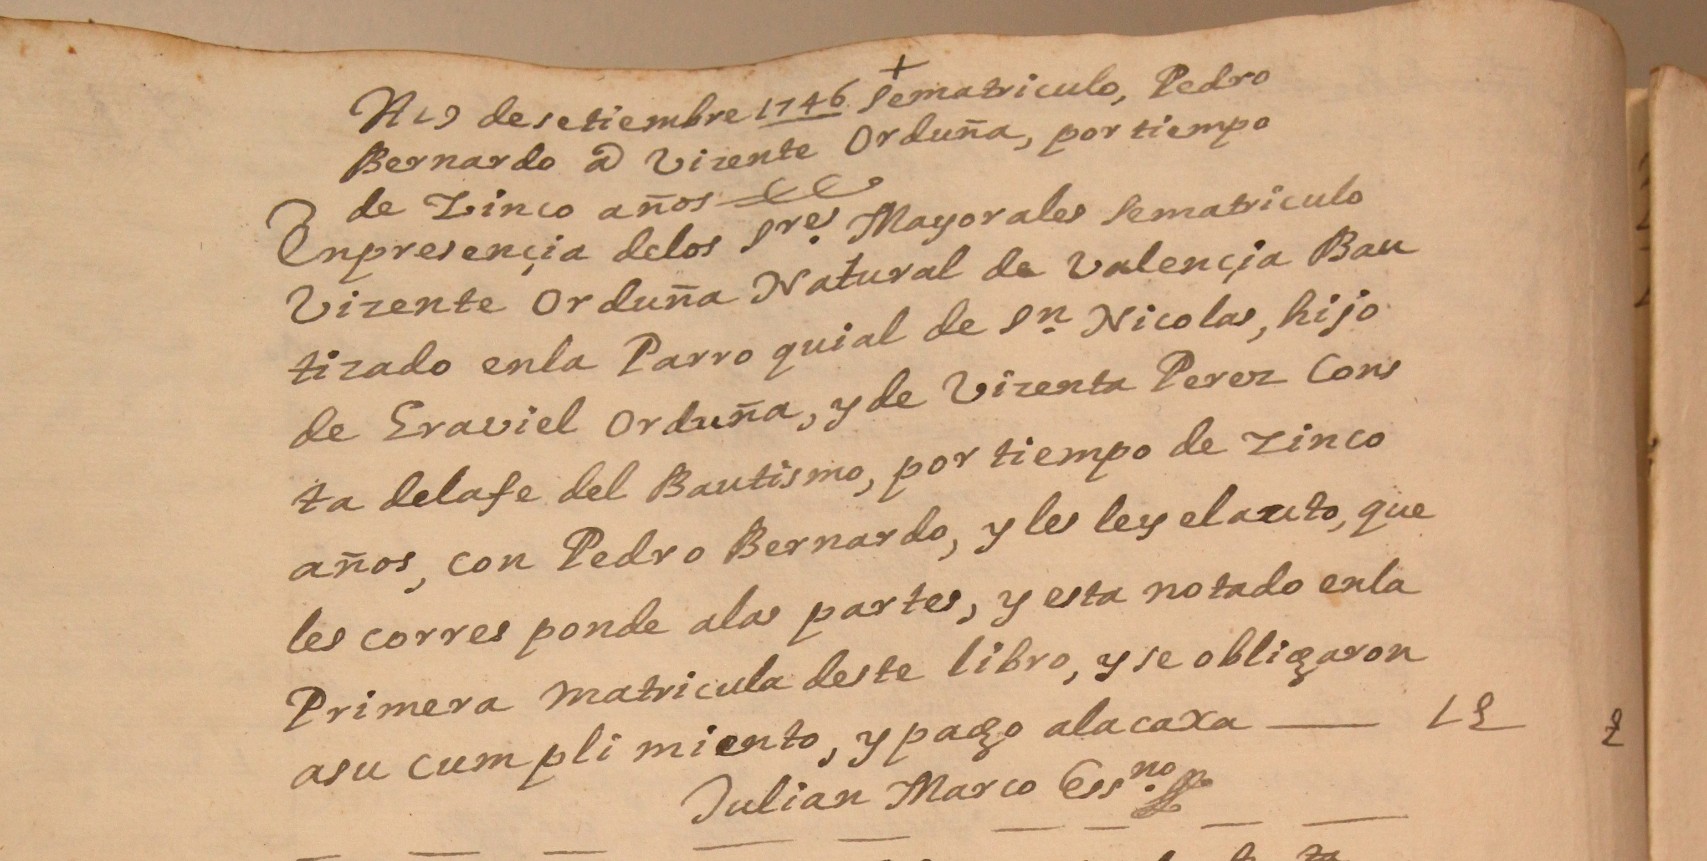 +
A 19 de setiembre 1746 Sematriculo, Pedro
Bernardo a Vizente Orduña, por tiempo
de Zinco años
Enpresençia delos Sres. Mayorales Sematriculo
Vizente Orduña Natural de Valençia Bau
tizado enla Parro quial de Sn. Nicolas, hijo
de Graviel Orduña, y de Vizenta Perez Cons
ta delafe del Bautismo, por tiempo de zinco
años, con Pedro Bernardo, y les ley elauto, que
les corres ponde alas partes, y esta notado enla
Primera Matricula deste libro, y se obligaron
asu cumpli miento, y pago alacaxa —— 1 L
Julian Marco Essno.